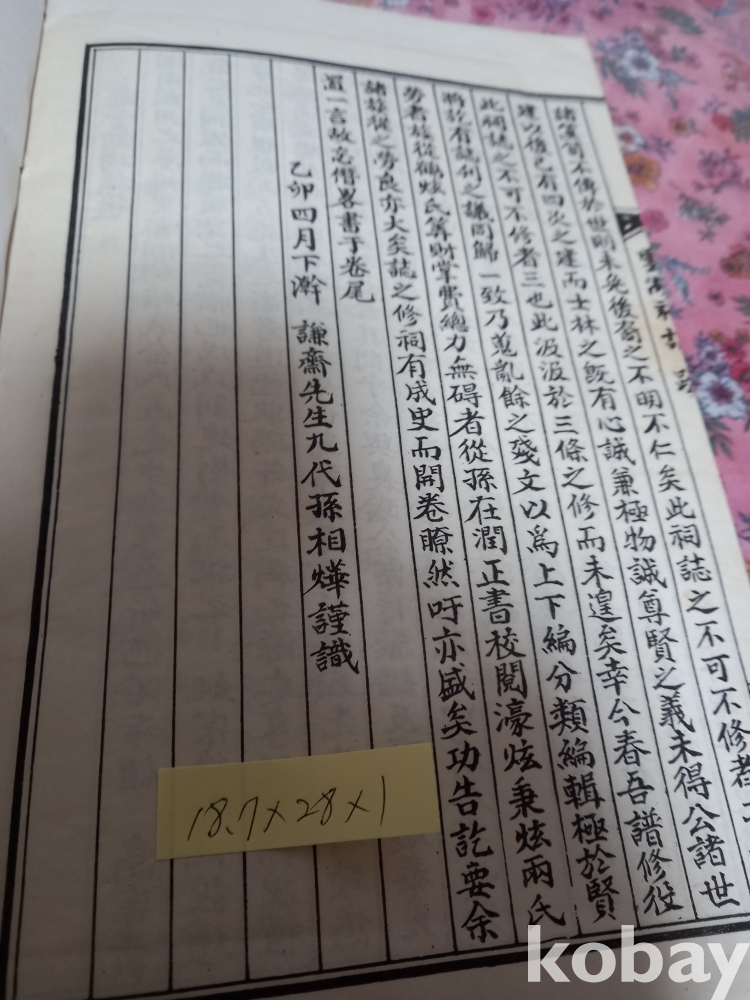 不傳於世明未免後裔之不明不仁矣此祠誌之不可不修者
建以舊已有四次之建而士林之旣有心誠兼極物誠尊賢之義未得公諸世
此祠誌之不可不修者三也此汲汲於三條之修而未遑矣幸今春吾譜修役
將訖有誌刊之議同歸一致乃蒐亂餘之殘文以爲上下編分類編輯極於賢
勞者族從鶴炫氏等財掌費總力無碍者從孫在潤正書校閱濠炫秉炫兩氏
諸族從之勞良亦大矣誌之修祠有成史而開卷瞭然吁亦盛矣功告訖要余
置一言故忘僭畧書于卷尾
乙卯四月下澣 謙齋先生九代孫相燁謹識
18.7×28×1
kobay